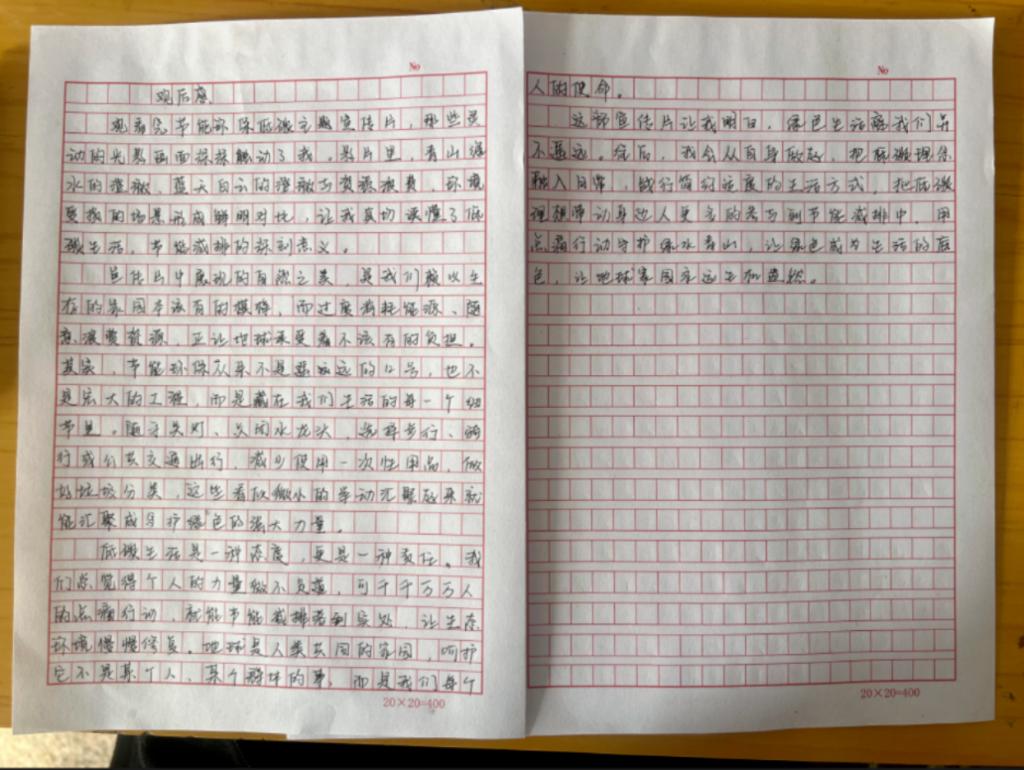 No
观后感
观看完节能环保低碳主题宣传片，那些灵
动的光影画面深深触动了我。影片里，青山绿
水的澄澈，蓝天白云的澄澈与资源浪费，环境
受损的场景形成鲜明对比，让我真切读懂了低
碳生活，节能减排的深刻意义。
宣传片中展现的自然之美，是我们赖以生
存的家园本该有的模样，而过度消耗能源、随
意浪费资源，正让地球承受着不该有的负担。
其实，节能环保从来不是遥远的口号，也不
是宏大的工程，而是藏在我们生活的每一个细
节里。随手关灯、关闭水龙头，选择步行、骑
行或公共交通出行，减少使用一次性用品，做
好垃圾分类，这些看似微小的举动汇聚起来就
能汇聚成守护绿色的强大力量。
低碳生活是一种态度，更是一种责任。我
们总觉得个人的力量微不足道，可千千万万人
的点滴行动，就能节能减排落到实处，让生态
环境慢慢修复。地球是人类共同的家园，呵护
它不是某个人、某个群体的事，而是我们每个
20×20=400
No
人的使命。
这部宣传片让我明白，绿色生活离我们并
不遥远。今后，我会从自身做起，把低碳理念
融入日常，践行简约适度的生活方式，把低碳
理想带动身边人更多的参与到节能减排中，用
点滴行动守护绿水青山，让绿色成为生活的底
色，让地球家园永远生机盎然。
20×20=400